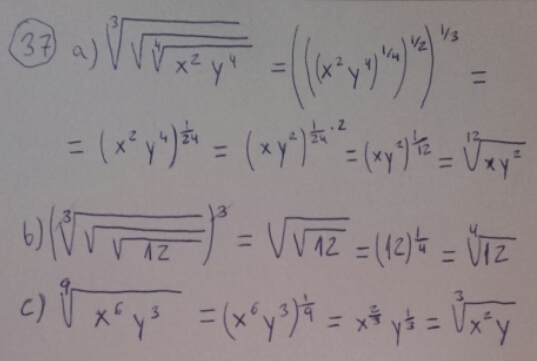 37 a) ∛(√(∜(x² y⁴))) = (((x² y⁴)^1/4)^1/2)^1/3 =
= (x² y⁴)^(1/24) = (x y²)^(1/24 · 2) = (xy²)^(1/12) = ¹²√(xy²)
b) (∛(√(√12)))³ = √(√12) = (12)^(1/4) = ∜12
c) ⁹√(x⁶ y³) = (x⁶ y³)^(1/9) = x^(2/3) y^(1/3) = ∛(x² y)